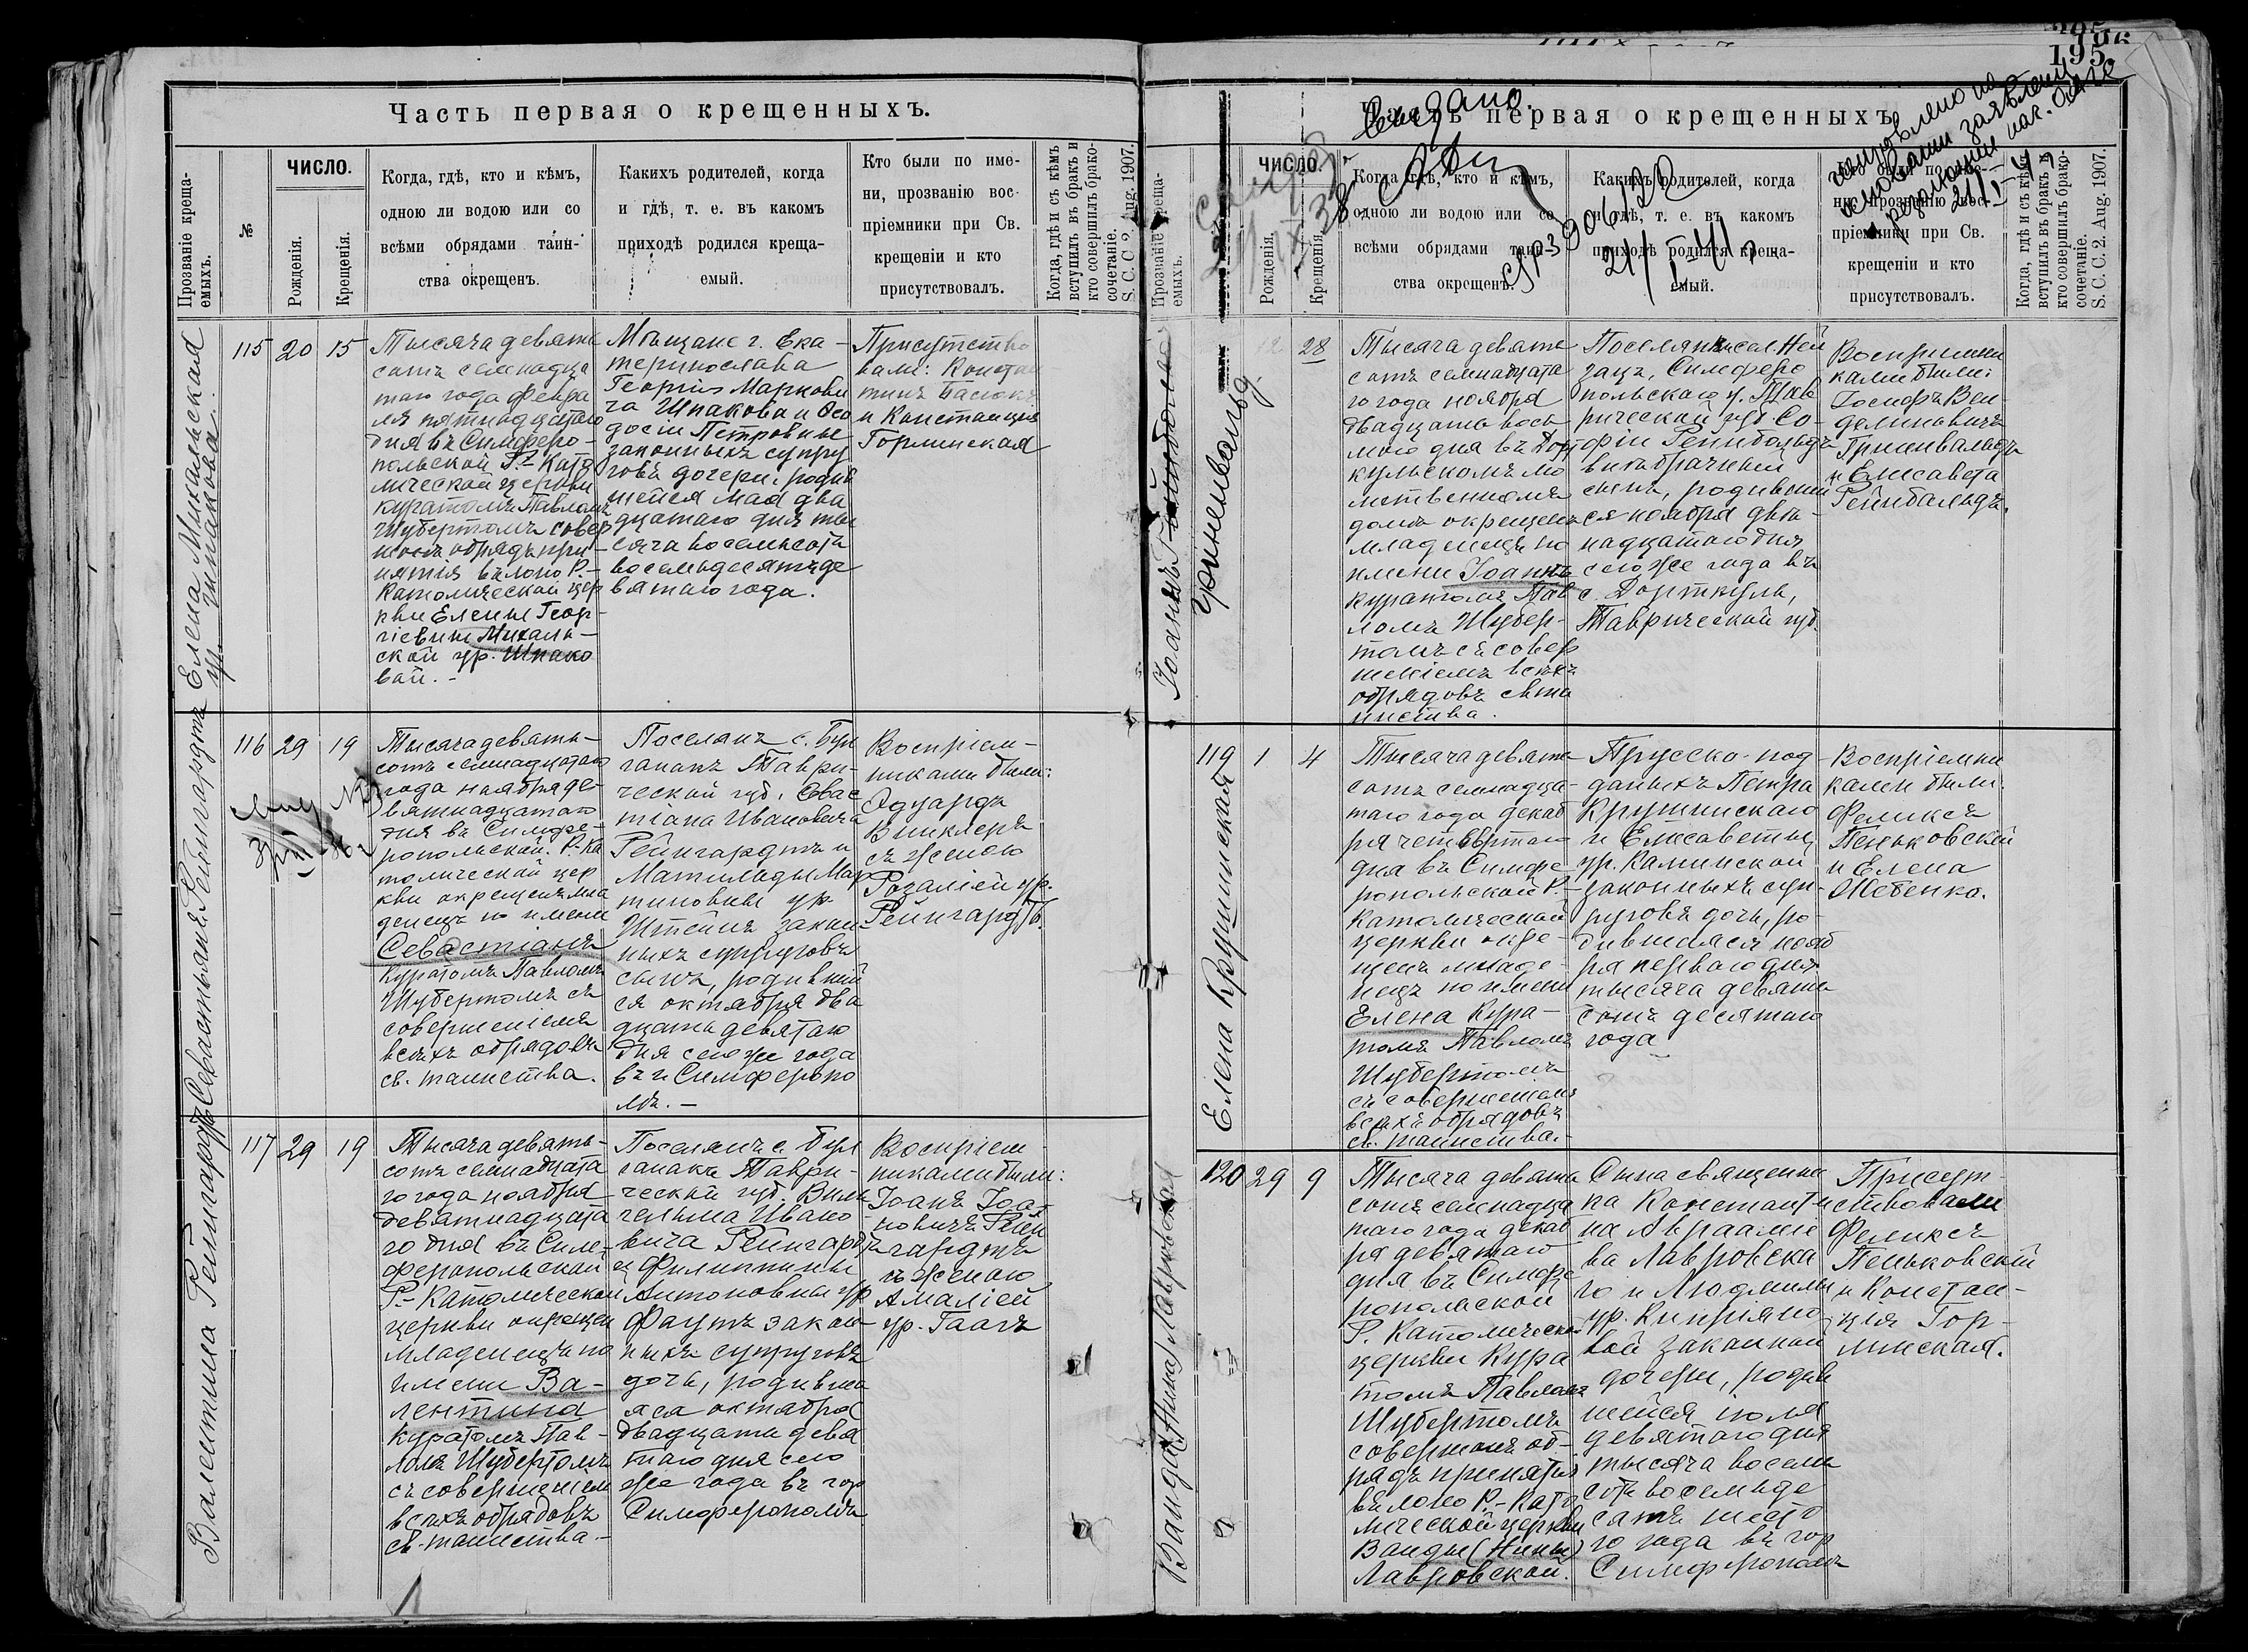 Часть первая о крещенныхъ.
Прозваніе креща-
емыхъ.
№
ЧИСЛО.
Рожденія.
Крещенія.
Когда, гдѣ, кто и кѣмъ,
одною ли водою или со
всѣми обрядами таин-
ства окрещенъ.
Какихъ родителей, когда
и гдѣ, т. е. въ какомъ
приходѣ родился креща-
емый.
Кто были по име-
ни, прозванію вос-
пріемники при Св.
крещеніи и кто
присутствовалъ.
Когда, гдѣ и съ кѣмъ
вступилъ въ бракъ и
кто совершилъ брако-
сочетаніе.
S. C. C. 2. Aug. 1907.
Елена Михальская
ур. Шпакова
115
20
15
Тысяча девять
сотъ семнадца
таго года Февра
ля пятнадцатаго
дня въ Симферо-
польской Р.-Като
лической церкви
куратомъ Павломъ
Шубертомъ совер
шонъ обрядъ при-
нятія въ лоно Р.-
Католической цер
кви Елены Геор-
гіевны Михаль-
ской ур. Шпако
вой.-
Мѣщане г. Ека-
теринослава
Георгія Маркови
ча Шпакова и Ѳео
досіи Петровны
законныхъ супру
говъ дочери, родив
шейся мая два
дцатаго дня ты
сяча восемьсотъ
восемьдесятъ де
вятаго года.
Присутство
вали: Констан
тинъ Басюкъ
и Констанція
Горлинская
Севастьянъ Рейнгардтъ
116
29
19
Тысяча девять-
сотъ семнадцатаго
года ноября де-
вятнадцатаго
дня въ Симфе-
ропольской Р.-Ка
толической цер
кви окрещенъ мла
денецъ по имени
Севастіанъ
Куратомъ Павломъ
Шубертомъ съ
совершеніемъ
всѣхъ обрядовъ
св. таинства.
Поселянъ с. Бул
ганакъ Таври-
ческой губ. Севас
тіана Ивановича
Рейнгардтъ и
Матильды Мар
тиновны ур.
Штейнъ закон
ныхъ супруговъ
сынъ, родившій
ся октября два
дцать девятаго
дня сего же года
въ г. Симферопо
лѣ.-
Воспріем-
никами были:
Эдуардъ
Винклеръ
съ женою
Розаліей ур.
Рейнгардтъ.
Валентина Рейнгардтъ
117
29
19
Тысяча девять-
сотъ семнадцата
го года ноября
девятнадцата
го дня въ Сим-
феропольской
Р.-Католической
церкви окрещен
младенецъ по
имени Ва-
лентина
куратомъ Пав-
ломъ Шубертомъ
съ совершеніем
всѣхъ обрядовъ
св. таинства-
Поселянъ с. Бул
ганакъ Таври-
ческой губ. Виль
гельма Ивано
вича Рейнгардтъ
и Филиппины
Антоновны ур.
Фаутъ закон
ныхъ супруговъ
дочь, родивша
яся октября
двадцать девя
таго дня сего
же года въ гор
Симферополѣ
Воспріем
никами были:
Іоанъ Іоа-
новичъ Рейн
гардтъ
съ женою
Амаліей
ур. Гаагъ
195
Часть первая о крещенныхъ.
Выдано.
906/20
21/I-41
21/I-41
Прозваніе креща-
емыхъ.
ЧИСЛО.
Рожденія.
Крещенія.
Когда, гдѣ, кто и кѣмъ,
одною ли водою или со
всѣми обрядами таин-
ства окрещенъ.
Какихъ родителей, когда
и гдѣ, т. е. въ какомъ
приходѣ родился креща-
емый.
Кто были по име-
ни, прозванію вос-
пріемники при Св.
крещеніи и кто
присутствовалъ.
Когда, гдѣ и съ кѣмъ
вступилъ въ бракъ и
кто совершилъ брако-
сочетаніе.
S. C. C. 2. Aug. 1907.
Іоанъ Рейнбольд
Гриненвальд
12
28
Тысяча девять
сотъ семнадцата
го года ноября
двадцать вось
мого дня въ Дорт
кульскомъ мо
литвенномъ
домѣ окрещенъ
младенецъ по
имени Іоаннъ
куратомъ Пав
ломъ Шубер-
томъ съ совер
шеніемъ всѣхъ
обрядовъ св. та
инства.
Поселянки сел. Ней
зацъ, Симферо
польскаго у. Тав
рической губ. Со-
фіи Рейнбольдъ
внѣбрачный
сынъ, родившій
ся ноября две-
надцатаго дня
сего же года въ
с. Дорткуль,
Таврической губ.
Воспріемни
ками были:
Іосифъ Вен-
делиновичъ
Гриненвальдъ
и Елисавета
Рейнбольдъ.
Елена Крушинская
119
1
4
Тысяча девять-
сотъ семнадца-
таго года декаб
ря четвёртаго
дня въ Симфе
ропольской Р.-
Католической
церкви окре-
щенъ младе-
нецъ по имени
Елена Кура-
томъ Павломъ
Шубертомъ
съ совершеніемъ
всѣхъ обрядовъ
св. таинства.-
Прусско-под
данныхъ Петра
Крушинскаго
и Елисаветы
ур. Калинской
законныхъ суп-
руговъ дочь, ро-
дившаяся нояб
ря перваго дня
тысяча девять
сотъ десятаго
года
Воспріемни
ками были:
Феликсъ
Пеньковскій
и Елена
Шебенко.
Ванда (Нина) Лавровская
120
29
9
Тысяча девять
сотъ семнадца
таго года декаб
ря девятаго
дня въ Симфе
ропольской
Р. Католической
церкви Кура
томъ Павломъ
Шубертомъ
совершонъ об-
рядъ принятія
въ лоно Р.-Като
лической церкви
Ванды (Нины)
Лавровской.
Сына священни
ка Константи
на Авраамо
ва Лавровска
го и Людмилы
ур. Кипріяно
вой законной
дочери, родив
шейся іюля
девятаго дня
тысяча восемь
сотъ восемьде
сятъ шесто
го года въ гор
Симферополѣ
Присут-
ствовали
Феликсъ
Пеньковскій
и Констан-
ція Гор-
линская.